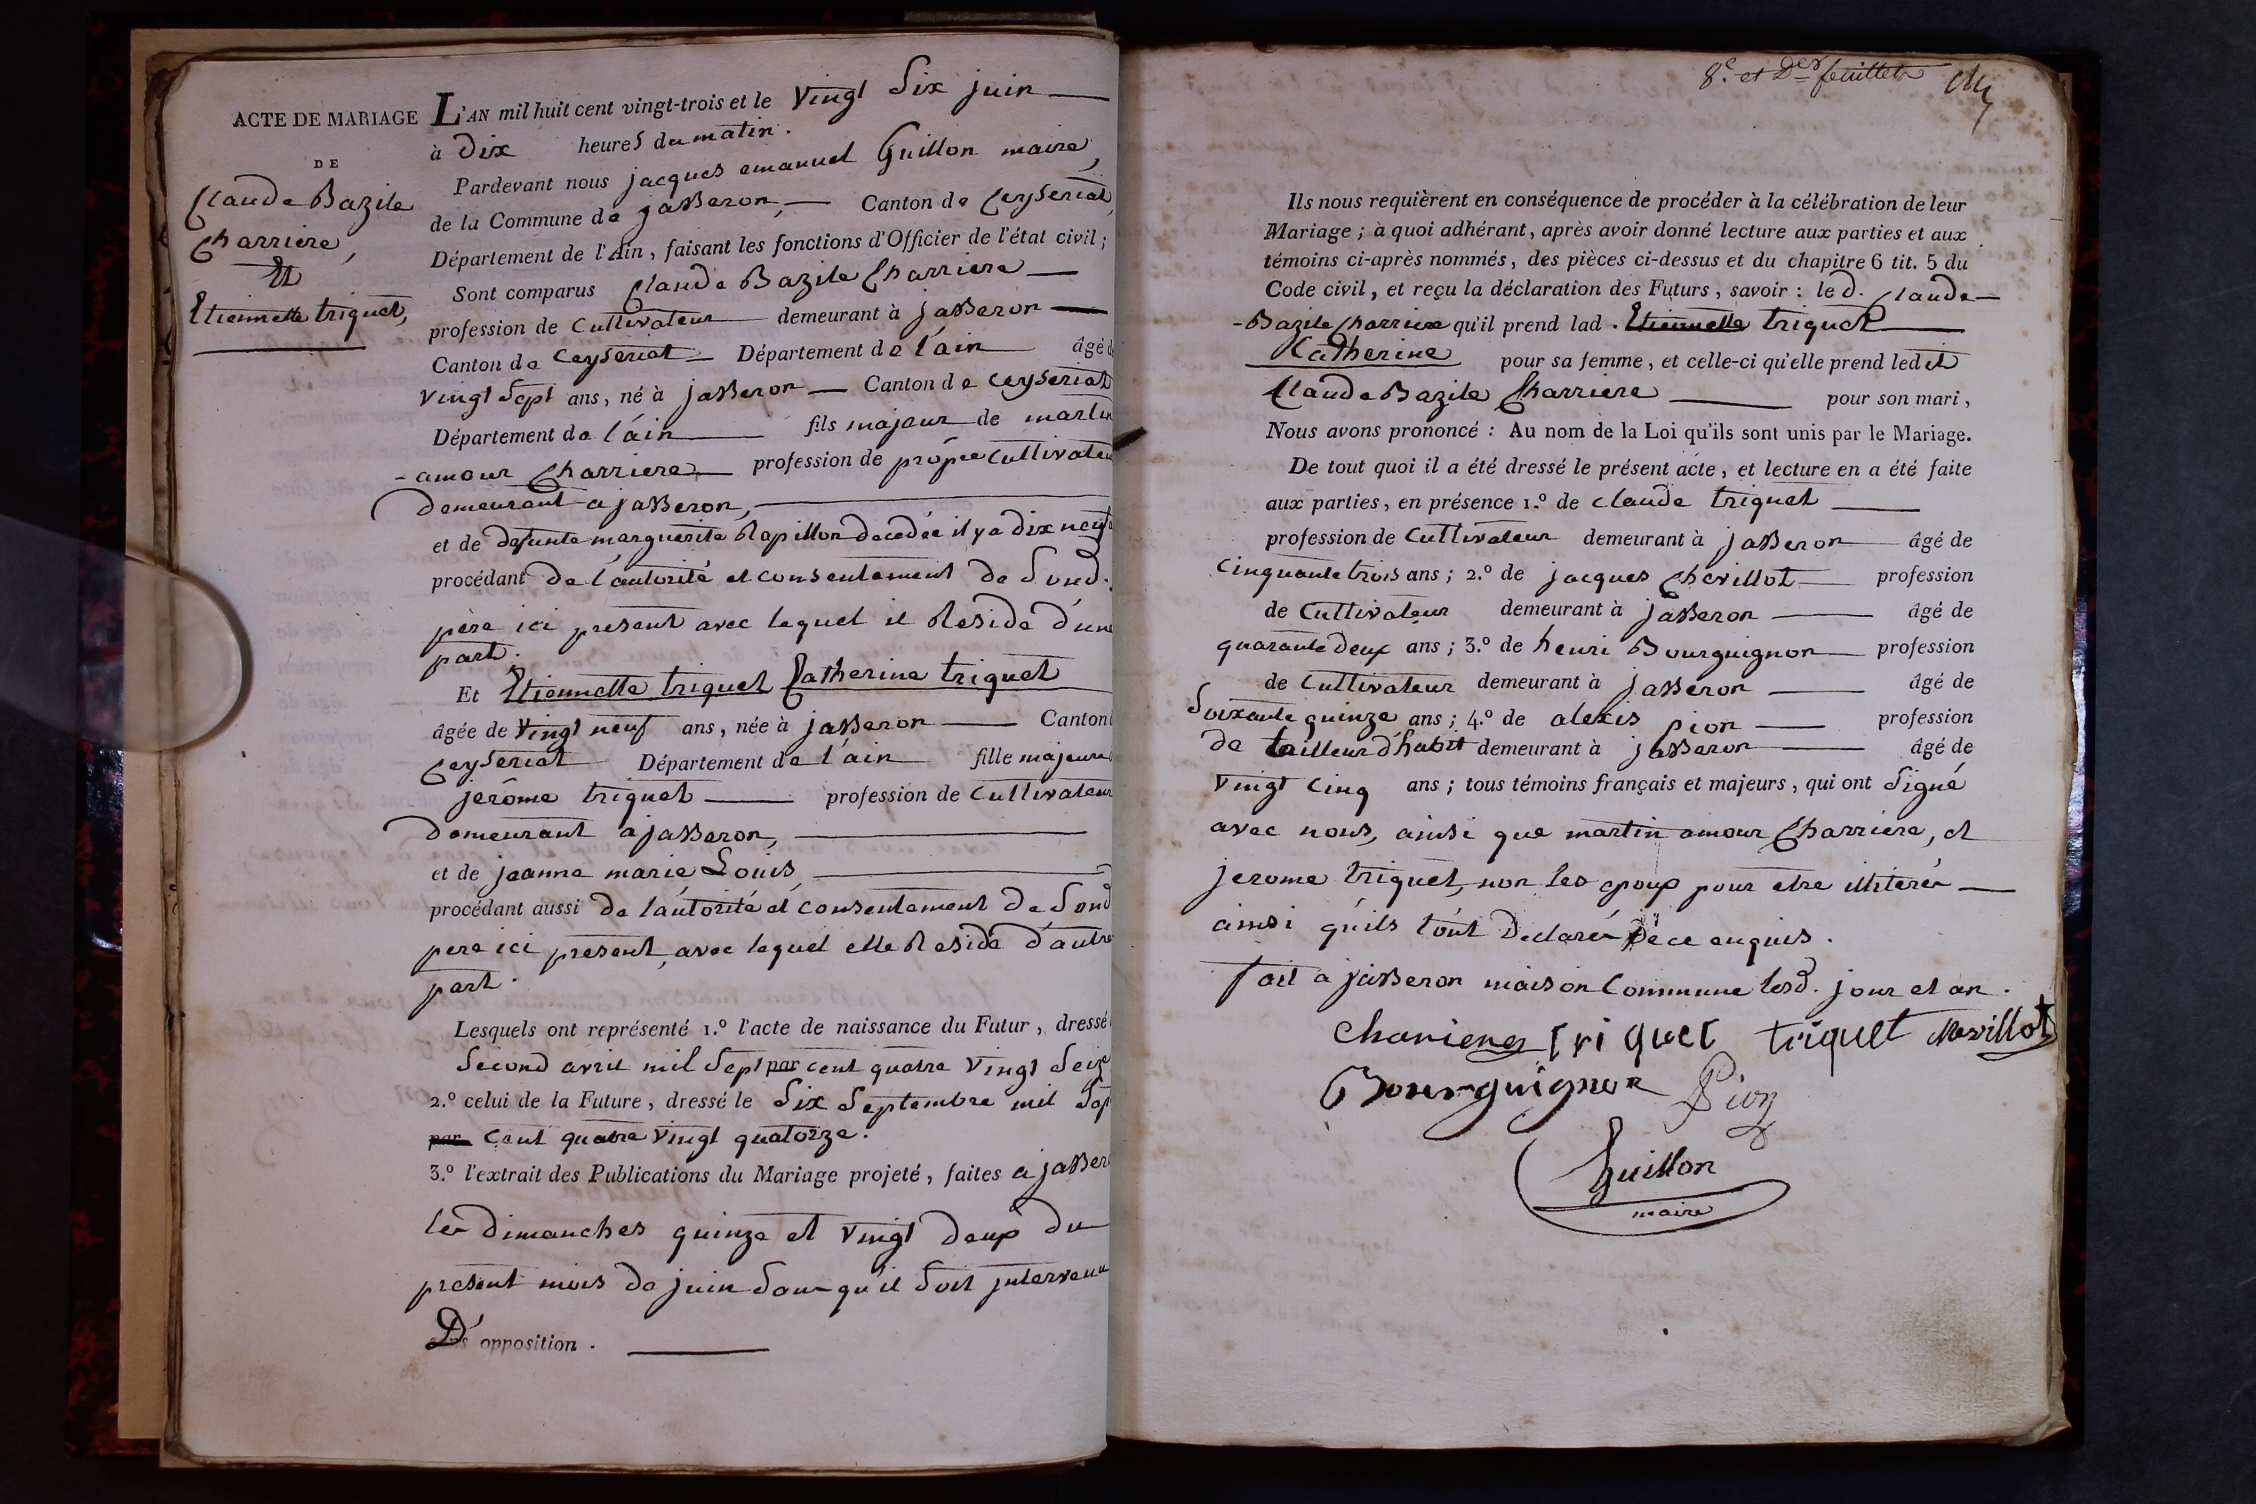 ACTE DE MARIAGE
DE
Claude Bazile
Charriere,
Et
Etiennette triquet,
L'AN mil huit cent vingt-trois et le vingt Six juin
à Dix heures du matin.
Pardevant nous jacques emanuel Guillon maire,
de la Commune de jasseron, Canton de Ceyseriat,
Département de l'Ain, faisant les fonctions d'Officier de l'état civil;
Sont comparus Claude Bazile Charriere
profession de Cultivateur demeurant à jasseron
Canton de Ceyseriat Département de l'ain âgé d
vingt Sept ans, né à jasseron Canton de Ceyseriat
Département de l'ain fils majeur de martin
-amour Charriere profession de propre Cultivateu
demeurant a jasseron,
et de defunte marguerite Rapillon decedée il y a dix neuf
procédant de l'autorité et consentement de Sond.
père ici present avec lequel il Reside d'une
part.
Et Etiennette triquet Catherine triquet
âgée de vingt neuf ans, née à jasseron Canton
Ceyseriat Département de l'ain fille majeure
jerôme triquet profession de Cultivateur
demeurant a jasseron,
et de jeanne marie Louis,
procédant aussi de l'autorité et consentement de Sond
pere ici present, avec lequel elle Reside d'autre
part.
Lesquels ont représenté 1.º l'acte de naissance du Futur, dressé
Second avril mil Sept par cent quatre vingt Seize
2.º celui de la Future, dressé le Six Septembre mil Sep
par cent quatre vingt quatorze.
3.º l'extrait des Publications du Mariage projeté, faites a jasser
les dimanches quinze et vingt deux du
present mois de juin Sans qu'il Soit intervenu
D'opposition.
8.e et Der feuillet
Ils nous requièrent en conséquence de procéder à la célébration de leur
Mariage; à quoi adhérant, après avoir donné lecture aux parties et aux
témoins ci-après nommés, des pièces ci-dessus et du chapitre 6 tit. 5 du
Code civil, et reçu la déclaration des Futurs, savoir: le d. Claude
-Bazile Charriere qu'il prend lad. Etiennette triquet
Catherine pour sa femme, et celle-ci qu'elle prend ledit
Claude Bazile Charriere pour son mari,
Nous avons prononcé: Au nom de la Loi qu'ils sont unis par le Mariage.
De tout quoi il a été dressé le présent acte, et lecture en a été faite
aux parties, en présence 1.º de claude triquet
profession de Cultivateur demeurant à jasseron âgé de
Cinquante trois ans; 2.º de jacques Chevillot profession
de Cultivateur demeurant à jasseron âgé de
quarante deux ans; 3.º de henri Bourguignon profession
de Cultivateur demeurant à jasseron âgé de
Soixante quinze ans; 4.º de alexis pion profession
de tailleur d'habit demeurant à jasseron âgé de
vingt Cinq ans; tous témoins français et majeurs, qui ont Signé
avec nous, ainsi que martin amour Charriere, et
jerome triquet, non les epoux pour etre illiterés
ainsi qu'ils l'ont declaré de ce enquis.
fait a jasseron maison Commune lesd. jour et an.
charriere triquet triquet chevillot
Bourguignon Pion
Guillon
maire